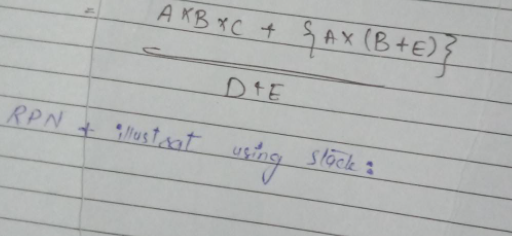 = A×B×C + {A×(B+E)}
D+E
RPN + illustrat using stack: